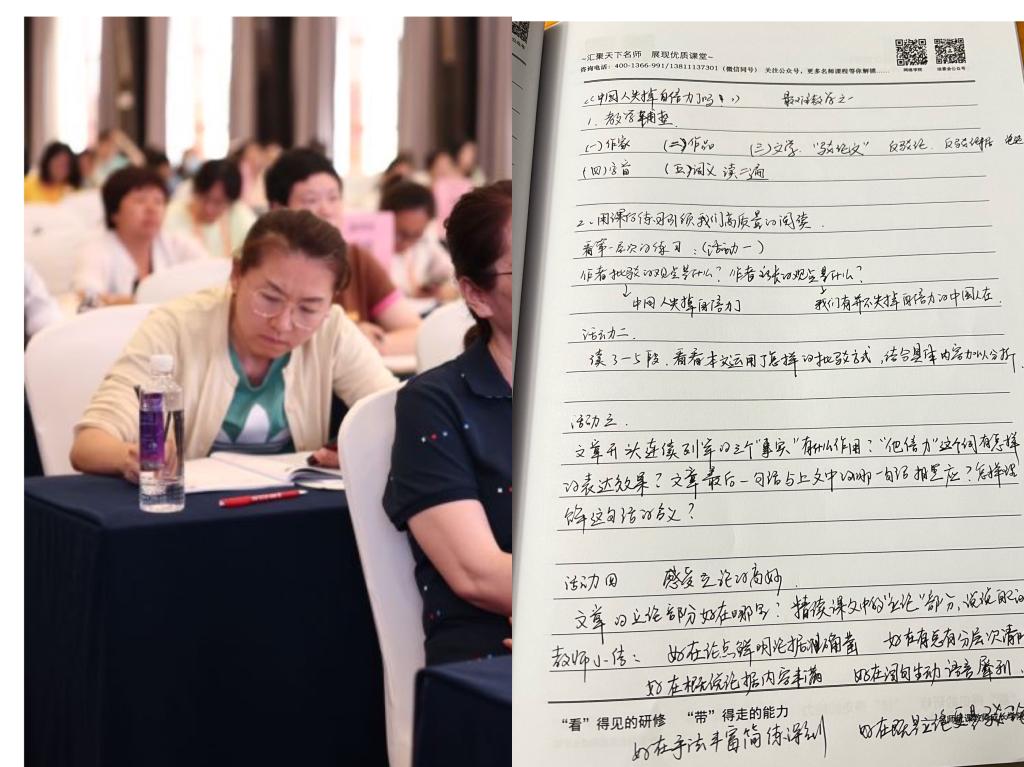 ~汇聚天下名师 展现优质课堂~
咨询电话：400-1366-991/13811137301（微信同号） 关注公众号，更多名师课程等你解锁……
《中国人失掉自信力了吗》
1、教学铺垫
(一)作家 (二)作品 (三)文学、"驳论文" 反驳论
(四)字音 (五)词义 读二遍
2、用课后练习引领我们高质量的阅读
看第一层次的练习：(活动一)
作者批驳的观点是什么？作者主张的观点是什么？
中国人失掉自信力 我们有并不失掉自信力的中国人在
活动二
读3—5段，看看本文运用了怎样的批驳方式，结合具体内容加以分析
活动三
文章开头连续列举的三个"事实"有什么作用？"他信力"这个词有怎样
的表达效果？文章最后一句话与上文中的哪一句话相照应？怎样理
解这句话的含义？
活动四 感受立论的高妙
文章的立论部分好在哪里？精读课文中的"立论"部分，说说
教师小结： 好在论点鲜明论据准确 好在有总有分层次清
好在概括论据内容丰满 好在词句生动语言犀利
"看"得见的研修 "带"得走的能力
好在手法丰富简练深刻 好在